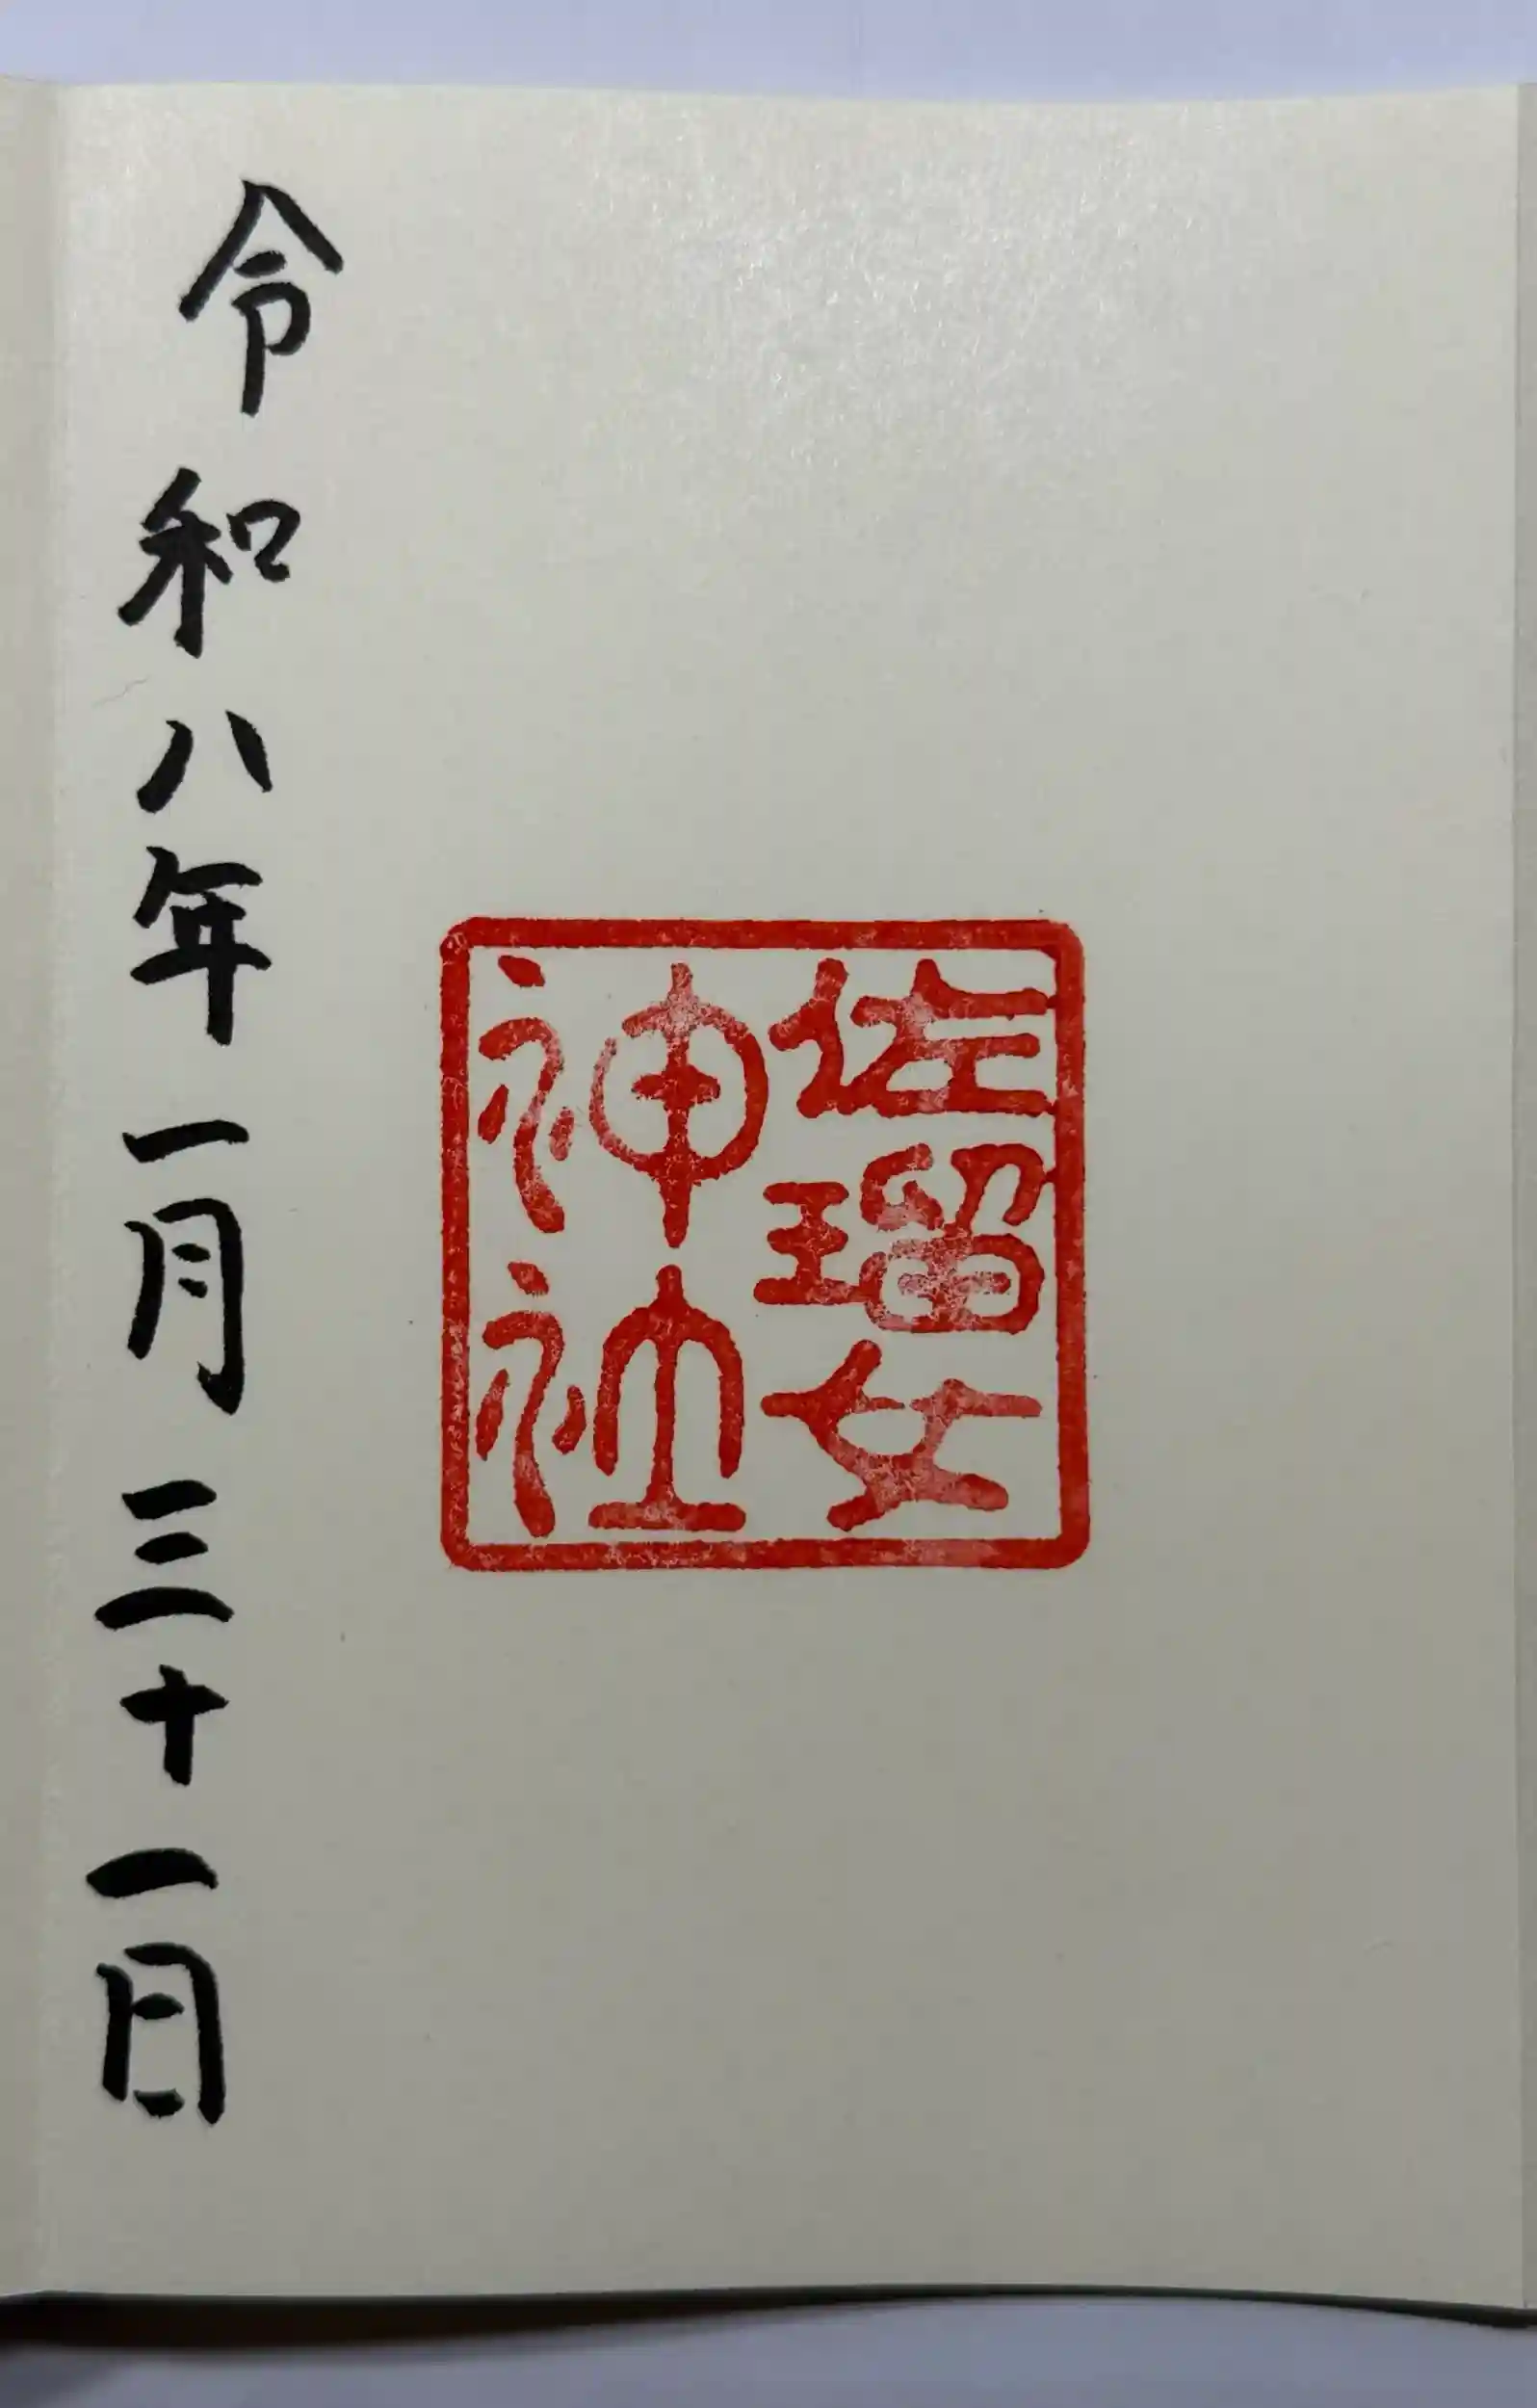 佐瑠女
神社
令和八年一月三十一日